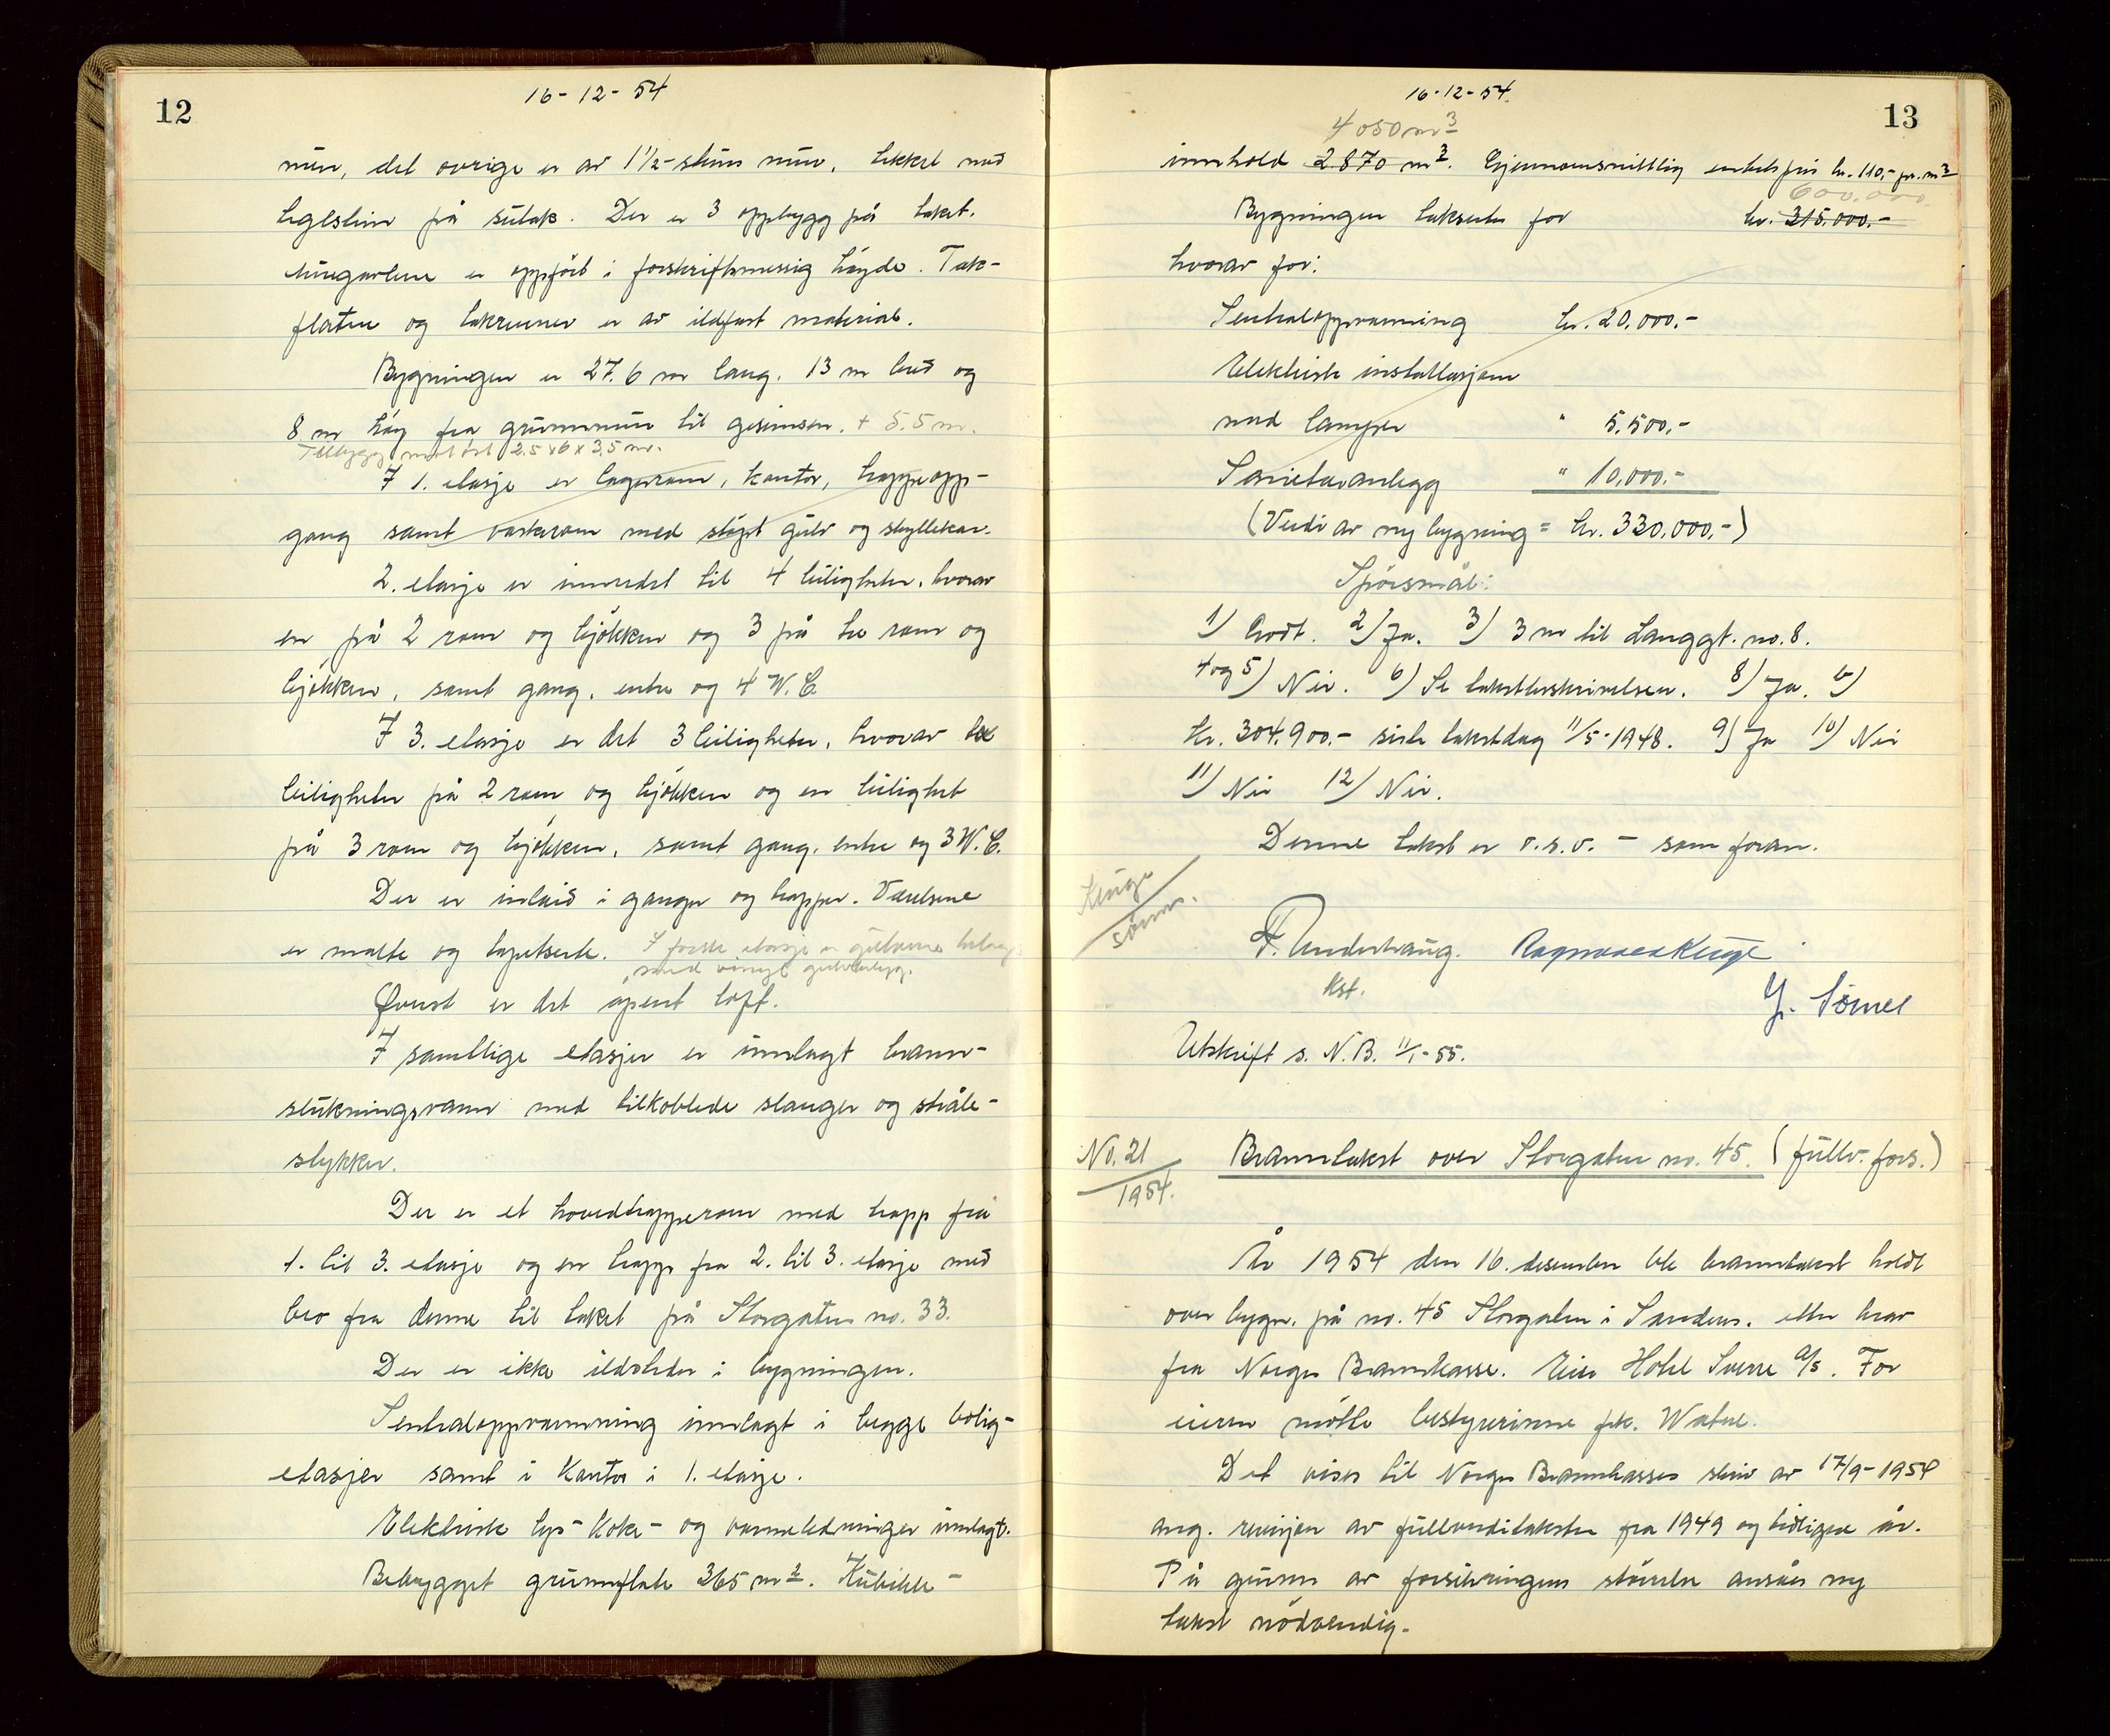 12
16-12-54
mur, det øvrige er av 1 1/2-stens mur, tekket med
teglsten på sutak. Der er 3 oppbygg på taket.
Murgavlene er oppført i forskriftsmessig høyde. Tak-
flaten og takrenner er av ildfast material.
Bygningen er 27.6 m lang, 13 m bred og
8 m høy fra grunnmur til gesimsen. + 5.5 m.
Tilbygg mot øst 2.5 x 6 x 3,5 m.
I 1. etasje er lagerrom, kontor, trappeopp-
gang samt vaskerom med støpt gulv og skyllekar.
2. etasje er innredet til 4 leiligheter, hvorav
en på 2 rom og kjøkken og 3 på tre rom og
kjøkken, samt gang, entre og 4 W.C.
I 3. etasje er det 3 leiligheter, hvorav to
leiligheter på 2 rom og kjøkken og en leilighet
på 3 rom og kjøkken, samt gang, entre og 3 W.C.
Der er inlaid i ganger og trapper. Værelsene
er malte og tapetserte. I første etasje er gulvene belagt
med vinyl gulvbelegg.
Øverst er det åpent loft.
I samtlige etasjer er innlagt brann-
slukningsvann med tilkoblede slanger og stråle-
stykker.
Der er et hovedtrapperom med trapp fra
1. til 3. etasje og en trapp fra 2. til 3. etasje med
bro fra denne til taket på Storgaten no. 33.
Der er ikke ildsteder i bygningen.
Sentraloppvarmning innlagt i begge bolig-
etasjer samt i kontor i 1. etasje.
Elektriske lys- koke- og varmeledninger innlagt.
Bebygget grunnflate 365 m2. Kubikk-
13
16-12-54.
4050 m3
innhold 2870 m3. Gjennomsnittlig enhetspris kr. 110,- pr. m3
600.000
Bygningen takseres for kr. 315.000.-
hvorav for:
Sentraloppvarming kr. 20.000.-
Elektriske installasjoner
med lamper " 5.500,-
Sanitæranlegg " 10.000.-
(Verdi av ny bygning = kr. 330.000,-)
Spørsmål:
1) Godt. 2) Ja. 3) 3 m til Langgt. no. 8.
4 og 5) Nei. 6) Se takstbeskrivelsen. 8) Ja. b)
Kr. 304.900.- siste takstdag 11/5-1948. 9) Ja 10) Nei
11) Nei 12) Nei.
Denne takst er o.s.v. - som foran.
Kluge
Sømme.
F. Underhaug. Ragnvald Kluge
Kst.
Y. Sømme
Utskrift s. N.B. 11/1-55.
No. 21
1954.
Branntakst over Storgaten no. 45. (fullv. fors.)
År 1954 den 16. desember ble branntakst holdt
over bygn. på no. 45 Storgaten i Sandnes, etter krav
fra Norges Brannkasse. Eier Hotel Sverre A/S. For
eieren møtte bestyrerinne frk. Watne.
Det vises til Norges Brannkasses skriv av 17/9-1954
ang. revisjon av fullverditakster fra 1949 og tidligere år.
På grunn av forsikringens størrelse ansåes ny
takst nødvendig.